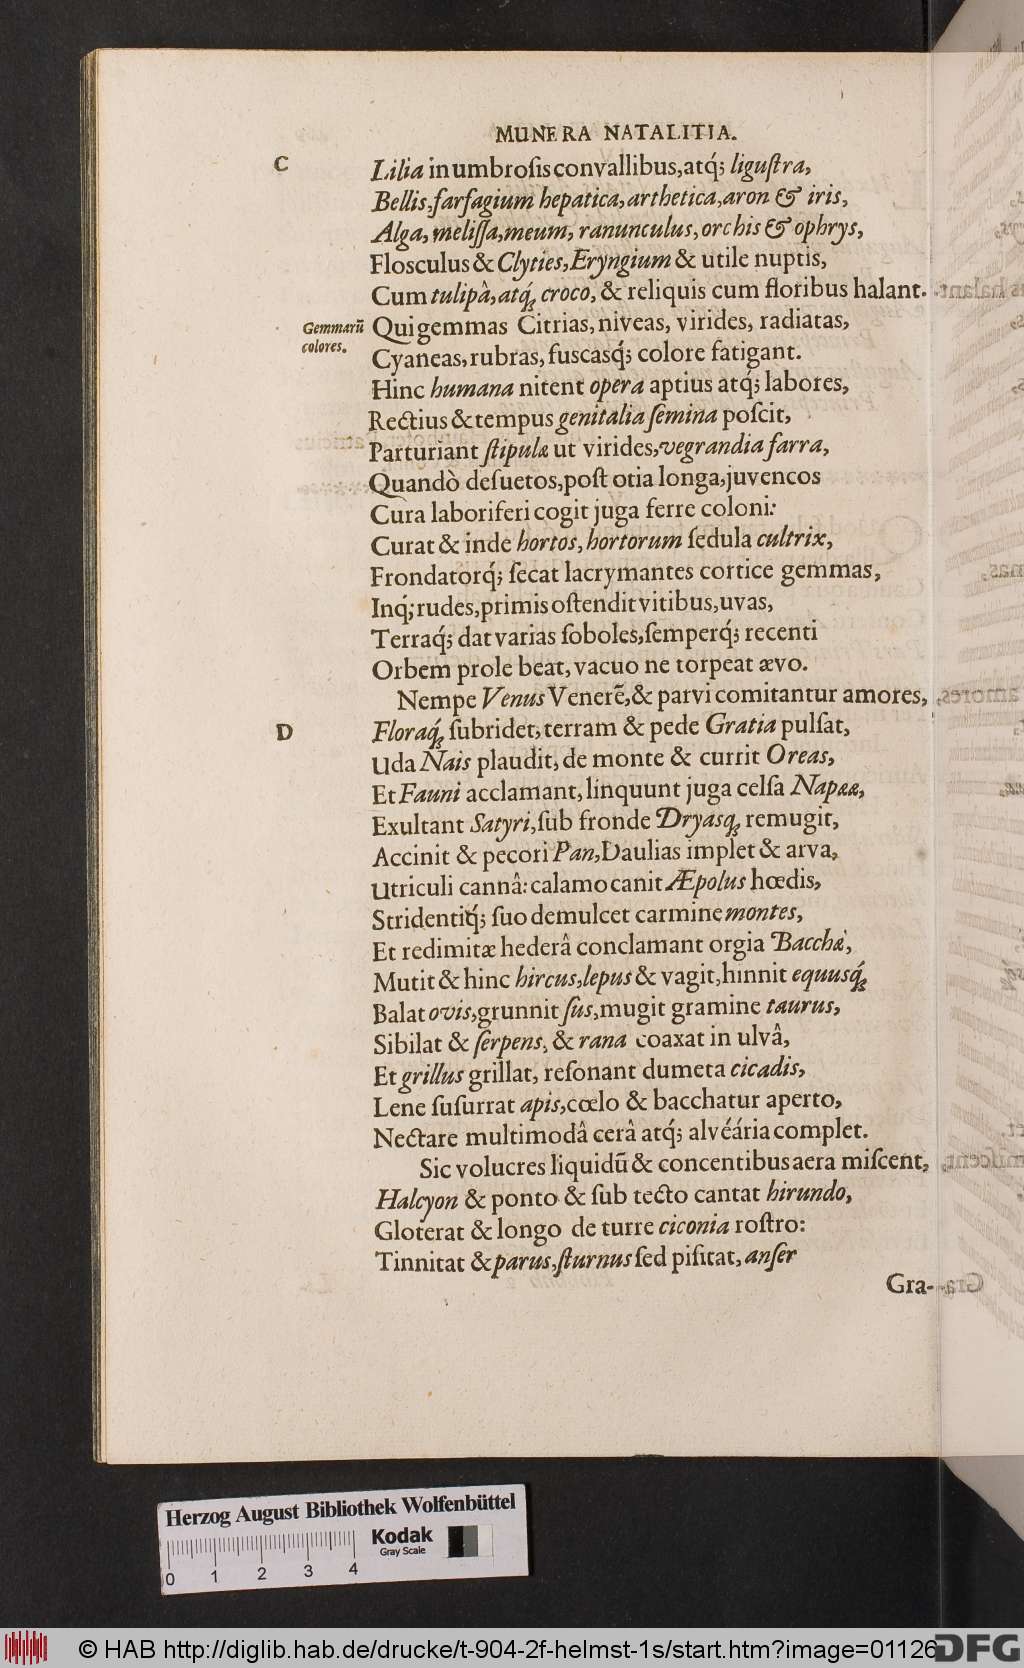 MUNERA NATALITIA.
C
Lilia in umbrosis convallibus, atq́; ligustra,
Bellis, farfagium hepatica, arthetica, aron & iris,
Alga, melissa, meum, ranunculus, orchis & ophrys,
Flosculus & Clyties, Eryngium & utile nuptis,
Cum tulipâ, atq́; croco, & reliquis cum floribus halant.
Gemmarũ
colores.
Qui gemmas Citrias, niveas, virides, radiatas,
Cyaneas, rubras, fuscasq́; colore fatigant.
Hinc humana nitent opera aptius atq́; labores,
Rectius & tempus genitalia semina poscit,
Parturiant stipulæ ut virides, vegrandia farra,
Quandò desuetos, post otia longa, juvencos
Cura laboriferi cogit juga ferre coloni:
Curat & inde hortos, hortorum sedula cultrix,
Frondatorq́; secat lacrymantes cortice gemmas,
Inq́; rudes, primis ostendit vitibus, uvas,
Terraq́; dat varias soboles, semperq́; recenti
Orbem prole beat, vacuo ne torpeat ævo.
Nempe Venus Venerẽ, & parvi comitantur amores,
D
Floraq́; subridet, terram & pede Gratia pulsat,
Uda Nais plaudit, de monte & currit Oreas,
Et Fauni acclamant, linquunt juga celsa Napææ,
Exultant Satyri, sub fronde Dryasq; remugit,
Accinit & pecori Pan, Daulias implet & arva,
Utriculi cannâ: calamo canit Æpolus hœdis,
Stridentiq́; suo demulcet carmine montes,
Et redimitæ hederâ conclamant orgia Bacchæ,
Mutit & hinc hircus, lepus & vagit, hinnit equusq́;
Balat ovis, grunnit sus, mugit gramine taurus,
Sibilat & serpens, & rana coaxat in ulvâ,
Et grillus grillat, resonant dumeta cicadis,
Lene susurrat apis, cœlo & bacchatur aperto,
Nectare multimodâ cerâ atq́; alvéária complet.
Sic volucres liquidũ & concentibus aera miscent,
Halcyon & ponto & sub tecto cantat hirundo,
Gloterat & longo de turre ciconia rostro:
Tinnitat & parus, sturnus sed pisitat, anser
Gra-
Herzog August Bibliothek Wolfenbüttel
Kodak
Gray Scale
0 1 2 3 4
© HAB http://diglib.hab.de/drucke/t-904-2f-helmst-1s/start.htm?image=01126
DFG